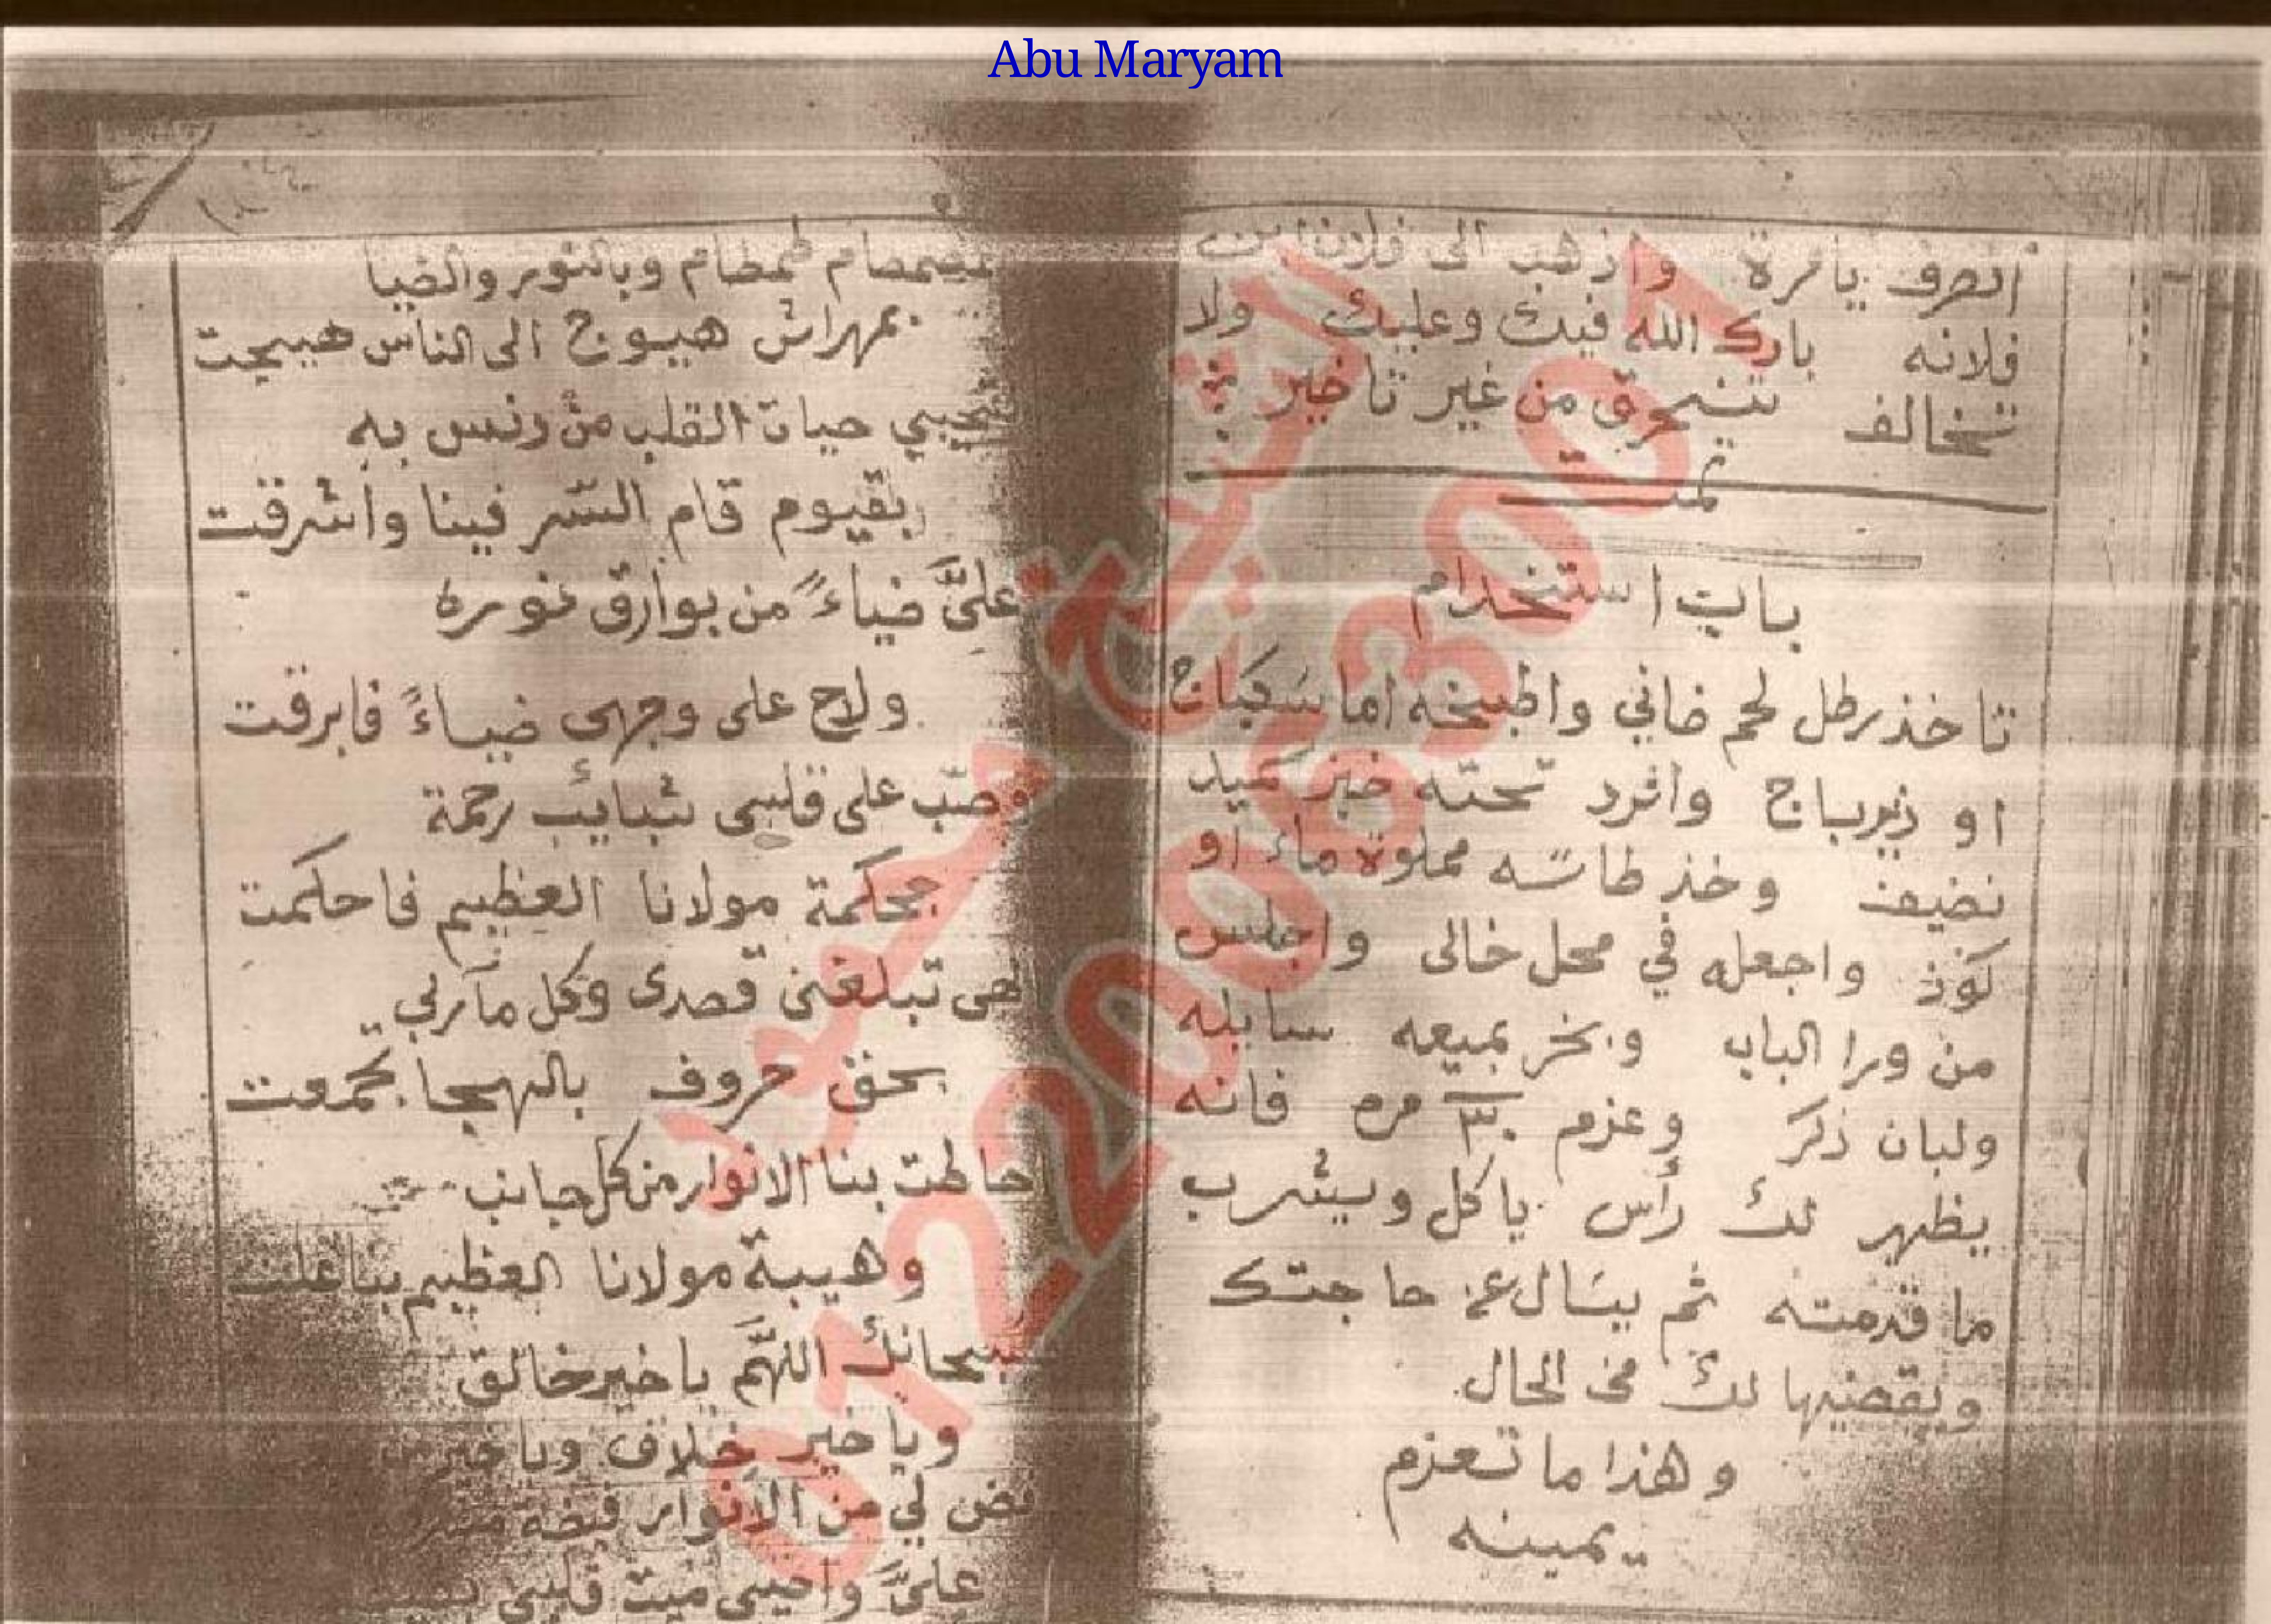 Abu Maryam
انصرف يا مرة واذهب الى فلان ابن
فلانه بارك الله فيك وعليك ولا
تخالف تنحرق من غير تاخير
تمت
باب استخدام
تاخذ رطل لحم ضاني واطبخه اما سكباج
او زيرباج وافرد تحته خبز
نضيف وخذ طاسه مملوة ماء او
كوز واجعله في محل خالى واجلس
من ورا الباب وبخر بميعه سايله
ولبان ذكر وعزم ٣٠ مره فانه
يظهر لك رأس ياكل ويشرب
ما قدمته ثم يسال عن حاجتك
ويقضيها لك في الحال
وهذا ما تعزم
يمينه
بصمصام طمطام وبالنور والضيا
بمهراش هيوج الى الناس هيجت
حياة القلب من دنس به
بقيوم قام السر فينا واشرقت
علىَّ ضياءً من بوارق نوره
ولاح على وجهى ضياءً فابرقت
وصب على قلبى شبايب رحمة
بحكمة مولانا العظيم فاحكمت
الهى تبلغنى قصدى وكل مآربي
بحق حروف بالهجا تجمعت
احاطت بنا الانوار من كل جانب
وهيبة مولانا العظيم بنا علت
سبحانك اللهم يا خير خالق
ويا خير خلاق ويا خير
افض لي من الانوار فيضة
علىَّ واحيى ميت قلبى
الشيخ
01220063001